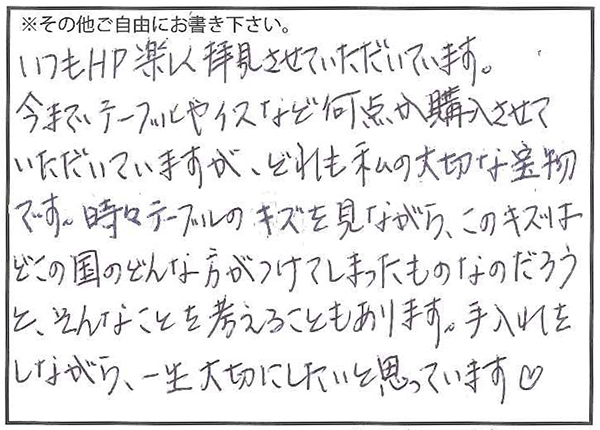 ※その他ご自由にお書き下さい。
いつもHP楽しく拝見させていただいています。
今までテーブルやイスなど何点か購入させて
いただいていますが、どれも私の大切な宝物
です。時々テーブルのキズを見ながら、このキズは
どこの国のどんな方がつけてしまったものなのだろう
と、そんなことを考えることもあります。手入れを
しながら、一生大切にしたいと思っています♡